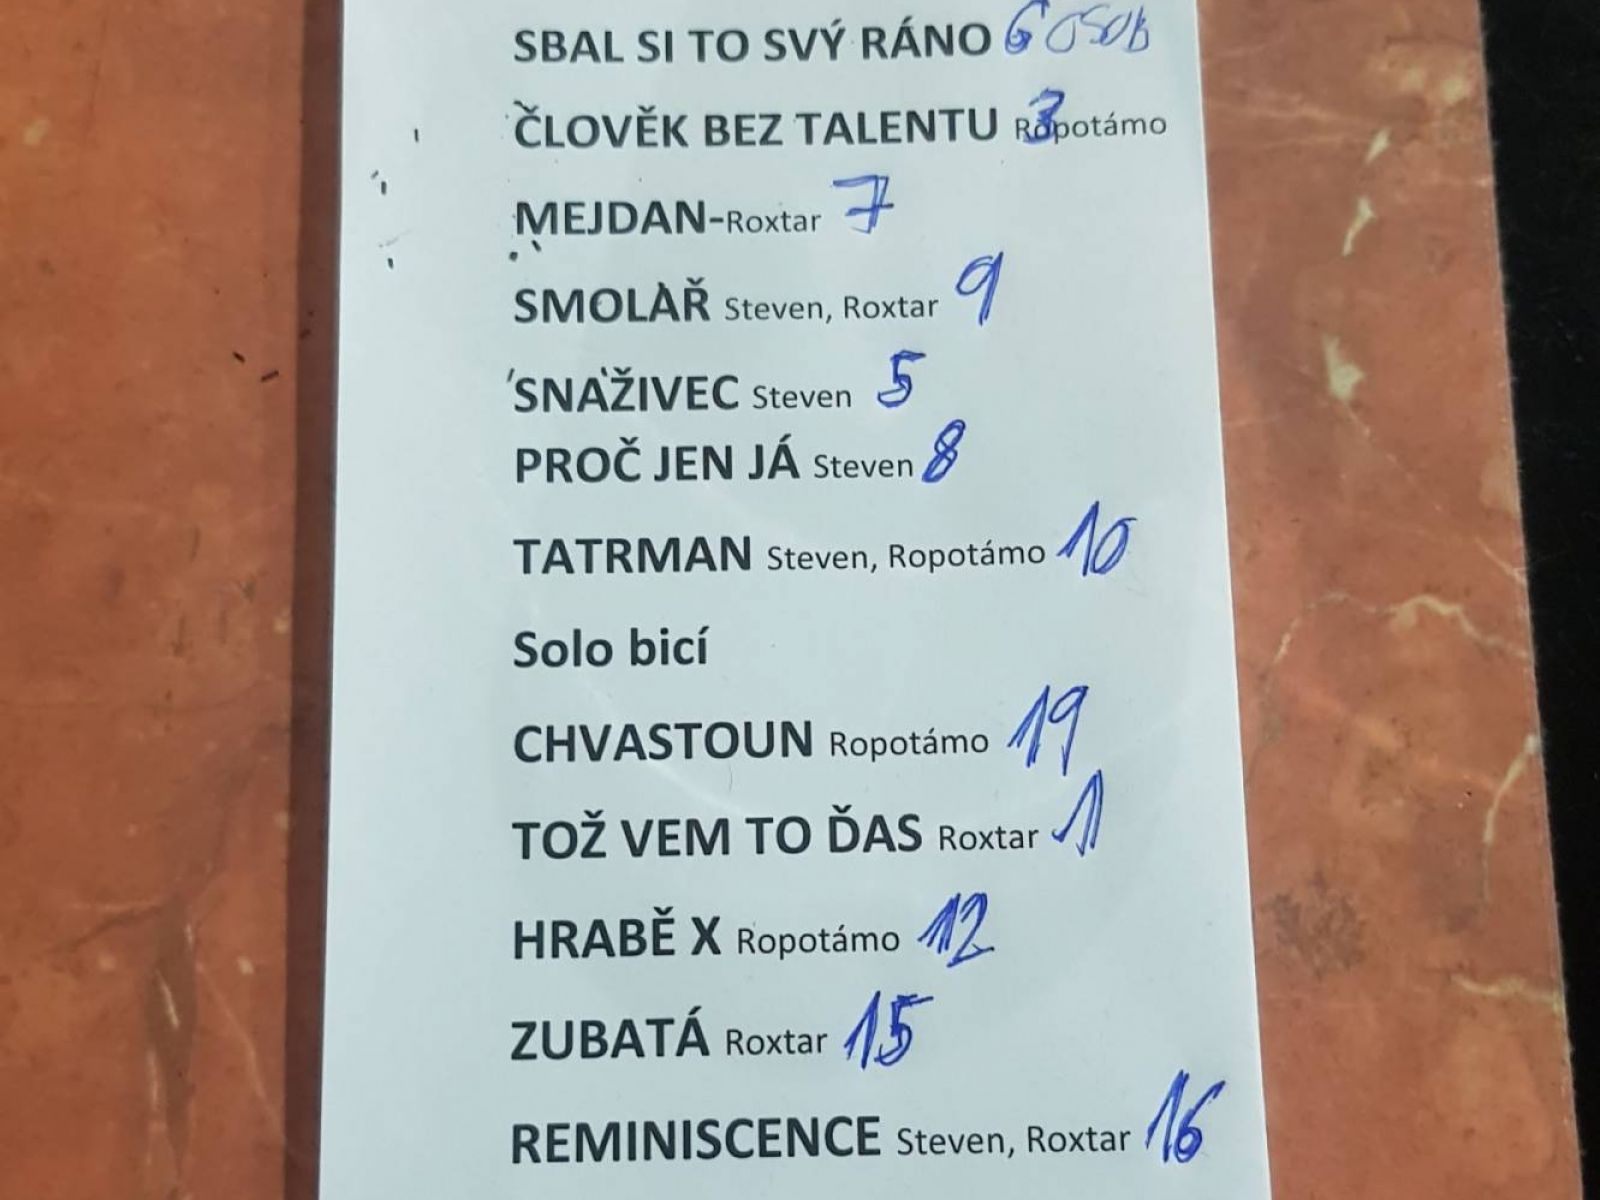 SBAL SI TO SVÝ RÁNO 6 OSOB
ČLOVĚK BEZ TALENTU Ropotámo 3
MEJDAN-Roxtar 7
SMOLAŘ Steven, Roxtar 9
SNAŽIVEC Steven 5
PROČ JEN JÁ Steven 8
TATRMAN Steven, Ropotámo 10
Solo bicí
CHVASTOUN Ropotámo 19
TOŽ VEM TO ĎAS Roxtar 1
HRABĚ X Ropotámo 12
ZUBATÁ Roxtar 15
REMINISCENCE Steven, Roxtar 16